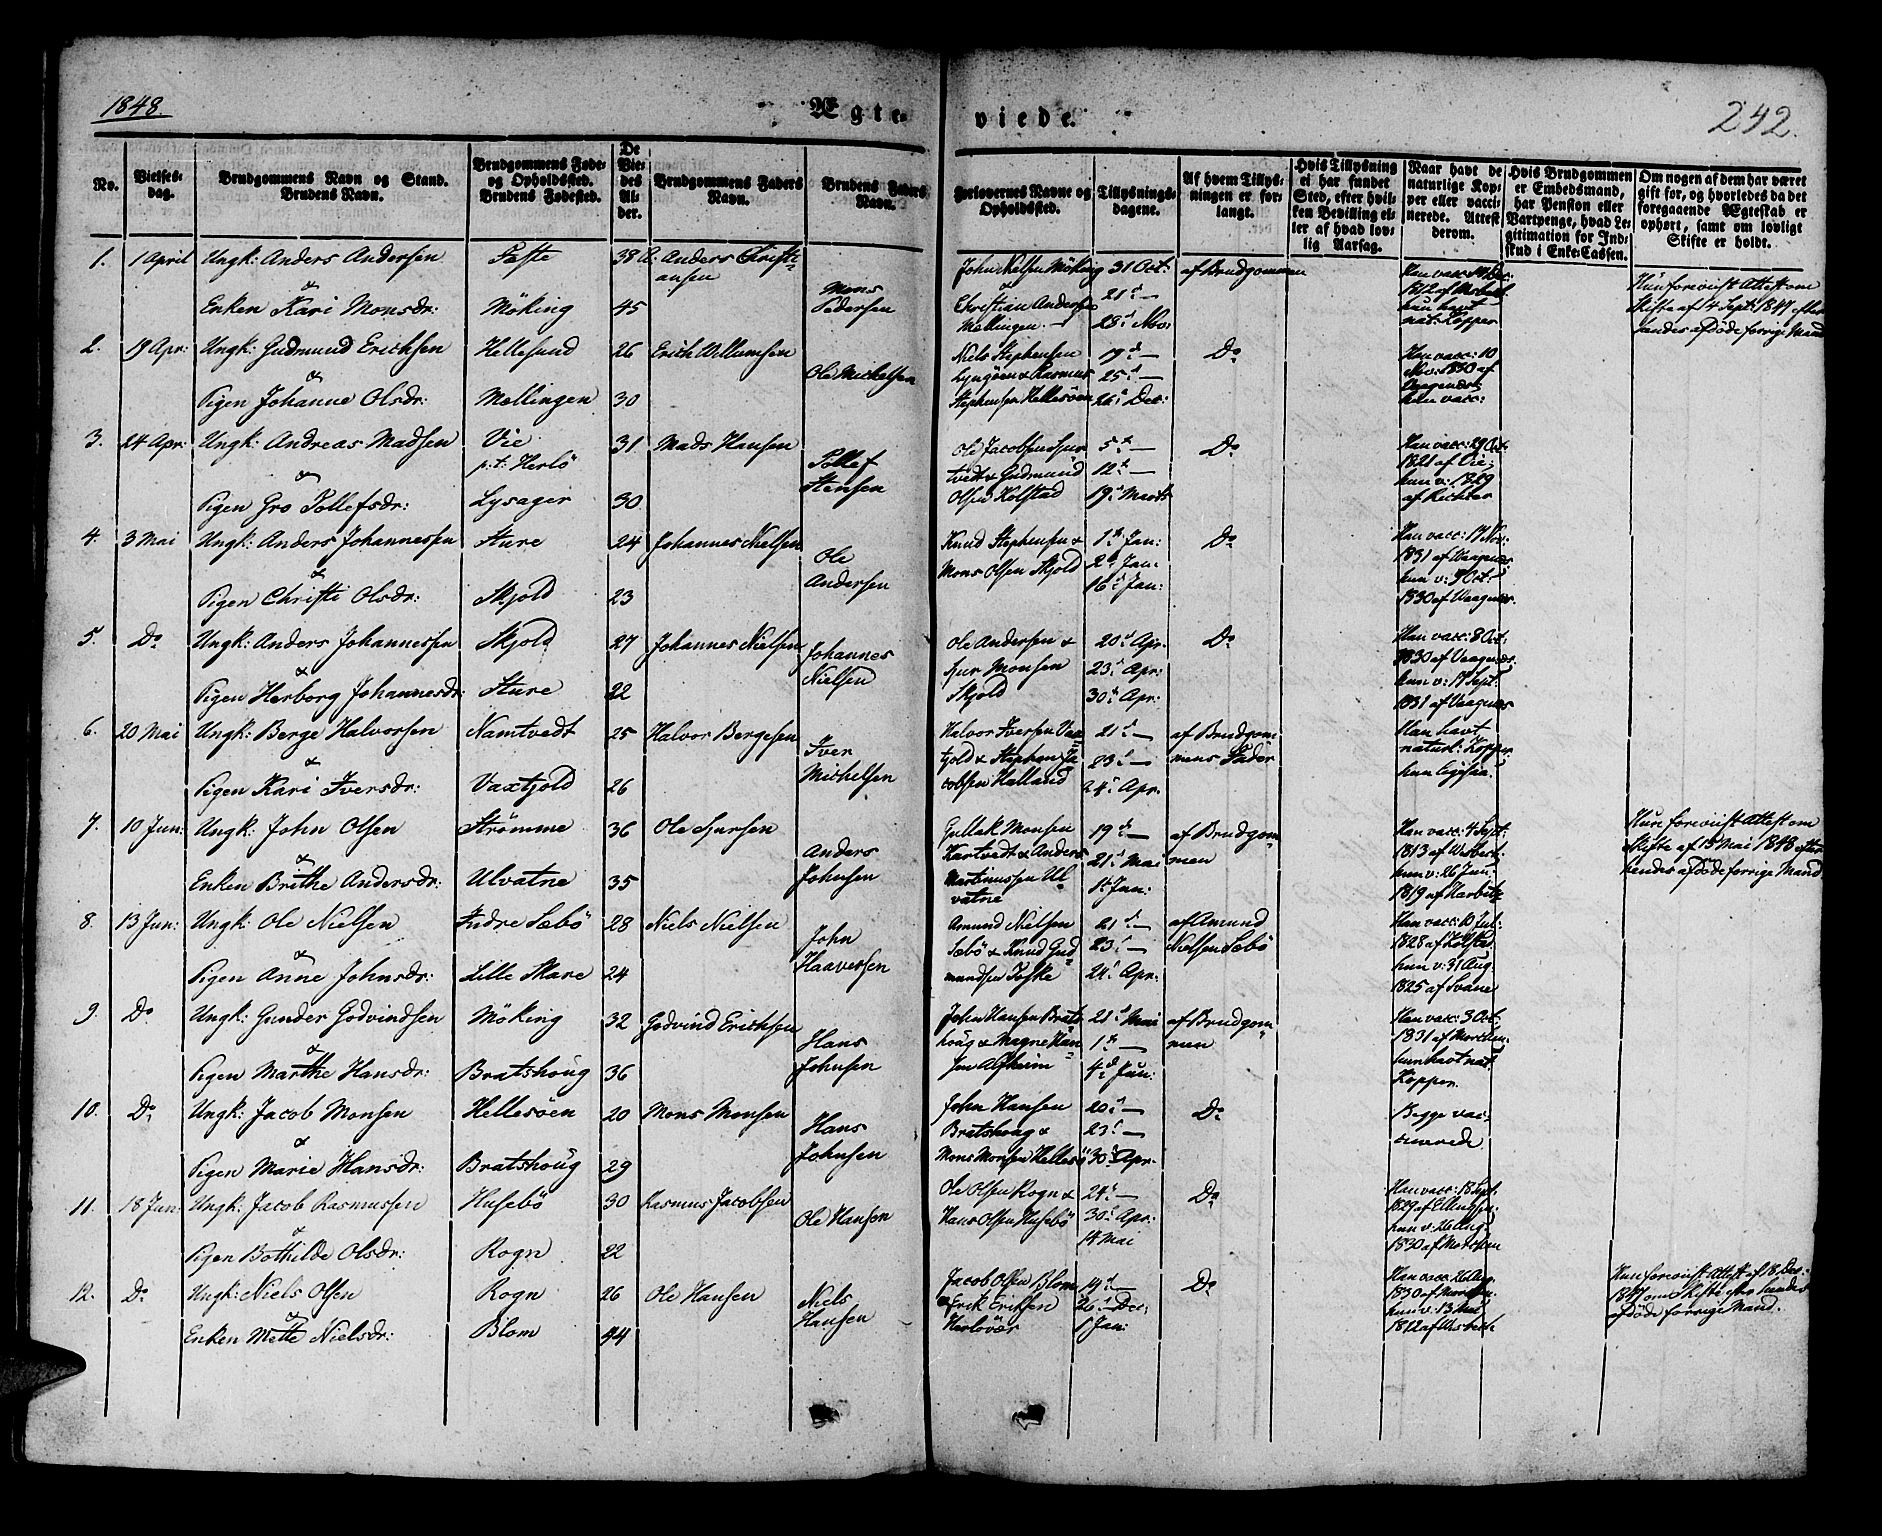 1848.
Ægte
viede.
242.
No.
Vielses-
dag.
Brudgommens Navn og Stand.
Brudens Navn.
Brudgommens Føde-
og Opholdssted.
Brudens Fødested.
De
Vie-
des
Al-
der.
Brudgommens Faders
Navn.
Brudens Faders
Navn.
Forlovernes Navne og
Opholdssted.
Tillysnings-
dagene.
Af hvem Tillys-
ningen er for-
langt.
Hvis Tillysning
ei har fundet
Sted, efter hvil-
ken Bevilling el-
ler af hvad lov-
lig Aarsag.
Naar havt de
naturlige Kop-
per eller vacci-
nerede. Attest
derom.
Hvis Brudgommen
er Embedsmand,
har Pension eller
Vartpenge, hvad Le-
gitimation for Ind-
skud i Enke-Cassen.
Om nogen af dem har været
gift før, og hvorledes da det
foregaaende Ægteskab er
ophørt, samt om lovligt
Skifte er holdt.
1. 1 April Ungk: Anders Andersen Toste 38 Anders Christi-
ansen
&
Enken Kari Monsdr: Möking 45 Mons
Pedersen
John Nielsen Möking 31 Oct: af Brudgommen
& 21 d —
Christian Andersen
Mellingen. 28 d Nov:
Han vacc:
1812 af
hun havt
nat: Kopper
Hun foreviist Attest om
Skifte af 14 Sept: 1847 efter
hendes afdöde forrige Mand
2. 19 Apr: Ungk: Gudmund Erichsen Hellesund 26 Erich Willumsen
&
Pigen Johanne Olsdr: Mællingen 30 Ole Michelsen
Niels Stephensen 19 d — Do
Lyngöen & Rasmus 25 d —
Stephensen Hellesöen 26 d Dec:
Han vacc: 10
Nov: 1830 af
Vaagenæs
hun vacc:
3. 24 Apr: Ungk: Andreas Madsen Vie 31 Mads Hansen
p.t. Herlö
&
Pigen Gro Tollefsdr: Lysager 30 Tollef
Stensen
Ole Jacobsen Spur 5 te — Do
tvedt & Gudmund 12 te —
Olsen Kolstad 19 d Marts
Han vacc: 29 Oct
1821 af Vie;
hun v: 1829
af Richter
4. 3 Mai Ungk: Anders Johannessen Sture 24 Johannes Nielsen
&
Pigen Christi Olsdr: Skjold 23 Ole
Andersen
Knud Stephensen & 1 te Jan: Do
Mons Olsen Skjold 2 d Jan:
16 d Jan:
Han vacc: 17 Nov:
1831 af Vaagenæs
hun v: 9 Oct:
1830 af Vaagenæs.
5. Do Ungk: Anders Johannessen Skjold 27 Johannes Nielsen
&
Pigen Herborg Johannesdr: Sture 22 Johannes
Nielsen
Ole Andersen & 20 d Apr. Do
Sjur Monsen 23 d Apr:
Skjold 30 d Apr:
Han vacc: 8 Oct:
1830 af Vaagenæs:
hun v: 17 Sept:
1831 af Vaagenæs
6. 20 Mai Ungk: Berge Halvorsen Namtvedt 25 Halvor Bergesen
&
Pigen Kari Iversdr: Vaxtjold 26 Iver
Michelsen
Halvor Iversen Vax- 21 d — af Brudgom-
tjold & Stephen Ja- 23 d — mens Fader
cobsen Halland 24 d Apr.
Han havt
naturl: Kopper
hun ligesaa.
7. 10 Jun: Ungk: John Olsen Strömme 36 Ole Sjursen
&
Enken Brithe Andersdr: Ulvatne 35 Anders
Johnsen
Gullak Monsen 19 d — af Brudgom-
Kartvedt & Anders 21 d Mai men
Martinussen Ul- 1 te Jun:
vatne
Han vacc: 4 Sept:
1813 af
hun v: 26 Jun:
1819 af Harbitz
Hun foreviist Attest om
Skifte af 15 Mai 1848 efter
hendes afdöde forrige Mand
8. 13 Jun: Ungk: Ole Nielsen Indre Sæbö 28 Niels Nielsen
&
Pigen Anne Johnsdr: Lille Skare 24 John
Haaversen
Amund Nielsen 21 d — af Amund
Sæbö & Knud Gud- 23 d — Nielsen Sæbö
mundsen Toske 24 d Apr:
Han vacc: 10 Jul:
1828 af
hun v: 31 Aug
1825 af Svane
9. Do Ungk: Gunder Godvindsen Möking 32 Godvind Erichsen
&
Pigen Marthe Hansdr: Bratshoug 36 Hans
Johnsen
John Hansen Brats- 21 d Mai af Brudgom-
houg & Magne Han- 1 te — men
sen Alfheim 4 d Jun:
Han vacc: 3 Oct:
1831 af
hun havt nat.
Kopper.
10. Do Ungk: Jacob Monsen Hellesöen 20 Mons Monsen
&
Pigen Marie Hansdr: Bratshoug 29 Hans
Johnsen
John Hansen 20 d — Do
Bratshoug & 23 d —
Mons Monsen Hellesö 30 d Apr.
Begge vac-
cinerede
11. 18 Jun: Ungk: Jacob Rasmussen Husebö 30 Rasmus Jacobsen
&
Pigen Bothilde Olsdr: Rogn 22 Ole Hansen
Ole Olsen Rogn & 24 d — Do
Hans Olsen Husebö 30 d Apr:
14 Mai
Han vacc: 18 Sept.
1829 af
hun v: 26 Aug
1830 af
12. Do Ungk: Niels Olsen Rogn 26 Ole Hansen
&
Enken Mette Nielsdr: Blom 44 Niels
Hansen
Jacob Olsen Blom 19 d — Do
Erik Eriksen 26 d Dec:
Herlövær 1 Jan:
Han vacc: 26 Aug.
1830 af
hun v: 13 Mai
1812 af
Hun foreviist Attest af 18 Dec:
1847 om Skifte efter hendes
afdöde forrige Mand.